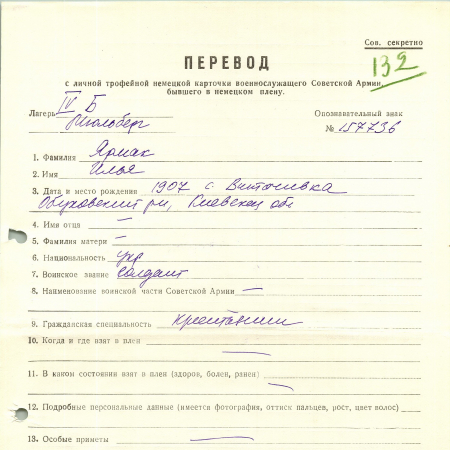 Сов. секретно
132
ПЕРЕВОД
с личной трофейной немецкой карточки военнослужащего Советской Армии,
бывшего в немецком плену.
Лагерь IV Б
Мюльберг
Опознавательный знак
№ 157736
1. Фамилия Ярмак
2. Имя Илья
3. Дата и место рождения 1907 с.
Обуховский р-н, Киевская обл
4. Имя отца —
5. Фамилия матери —
6. Национальность укр
7. Воинское звание солдат
8. Наименование воинской части Советской Армии —
9. Гражданская специальность крестьянин
10. Когда и где взят в плен —
11. В каком состоянии взят в плен (здоров, болен, ранен) —
12. Подробные персональные данные (имеется фотография, оттиск пальцев, рост, цвет волос)
13. Особые приметы —